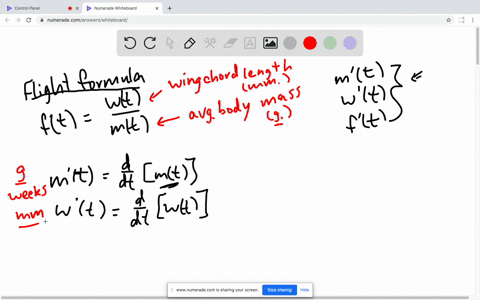 Control Panel
Numerade Whiteboard
numerade.com/answers/whiteboard/
Flight formula
f(t) = w(t)/m(t)
wingchord length
(mm.)
avg. body mass
(g.)
m'(t)
w'(t)
f'(t)
g
weeks
mm
m'(t) = d/dt [m(t)]
w'(t) = d/dt [w(t)]
www.numerade.com is sharing your screen.
Stop sharing
Hide